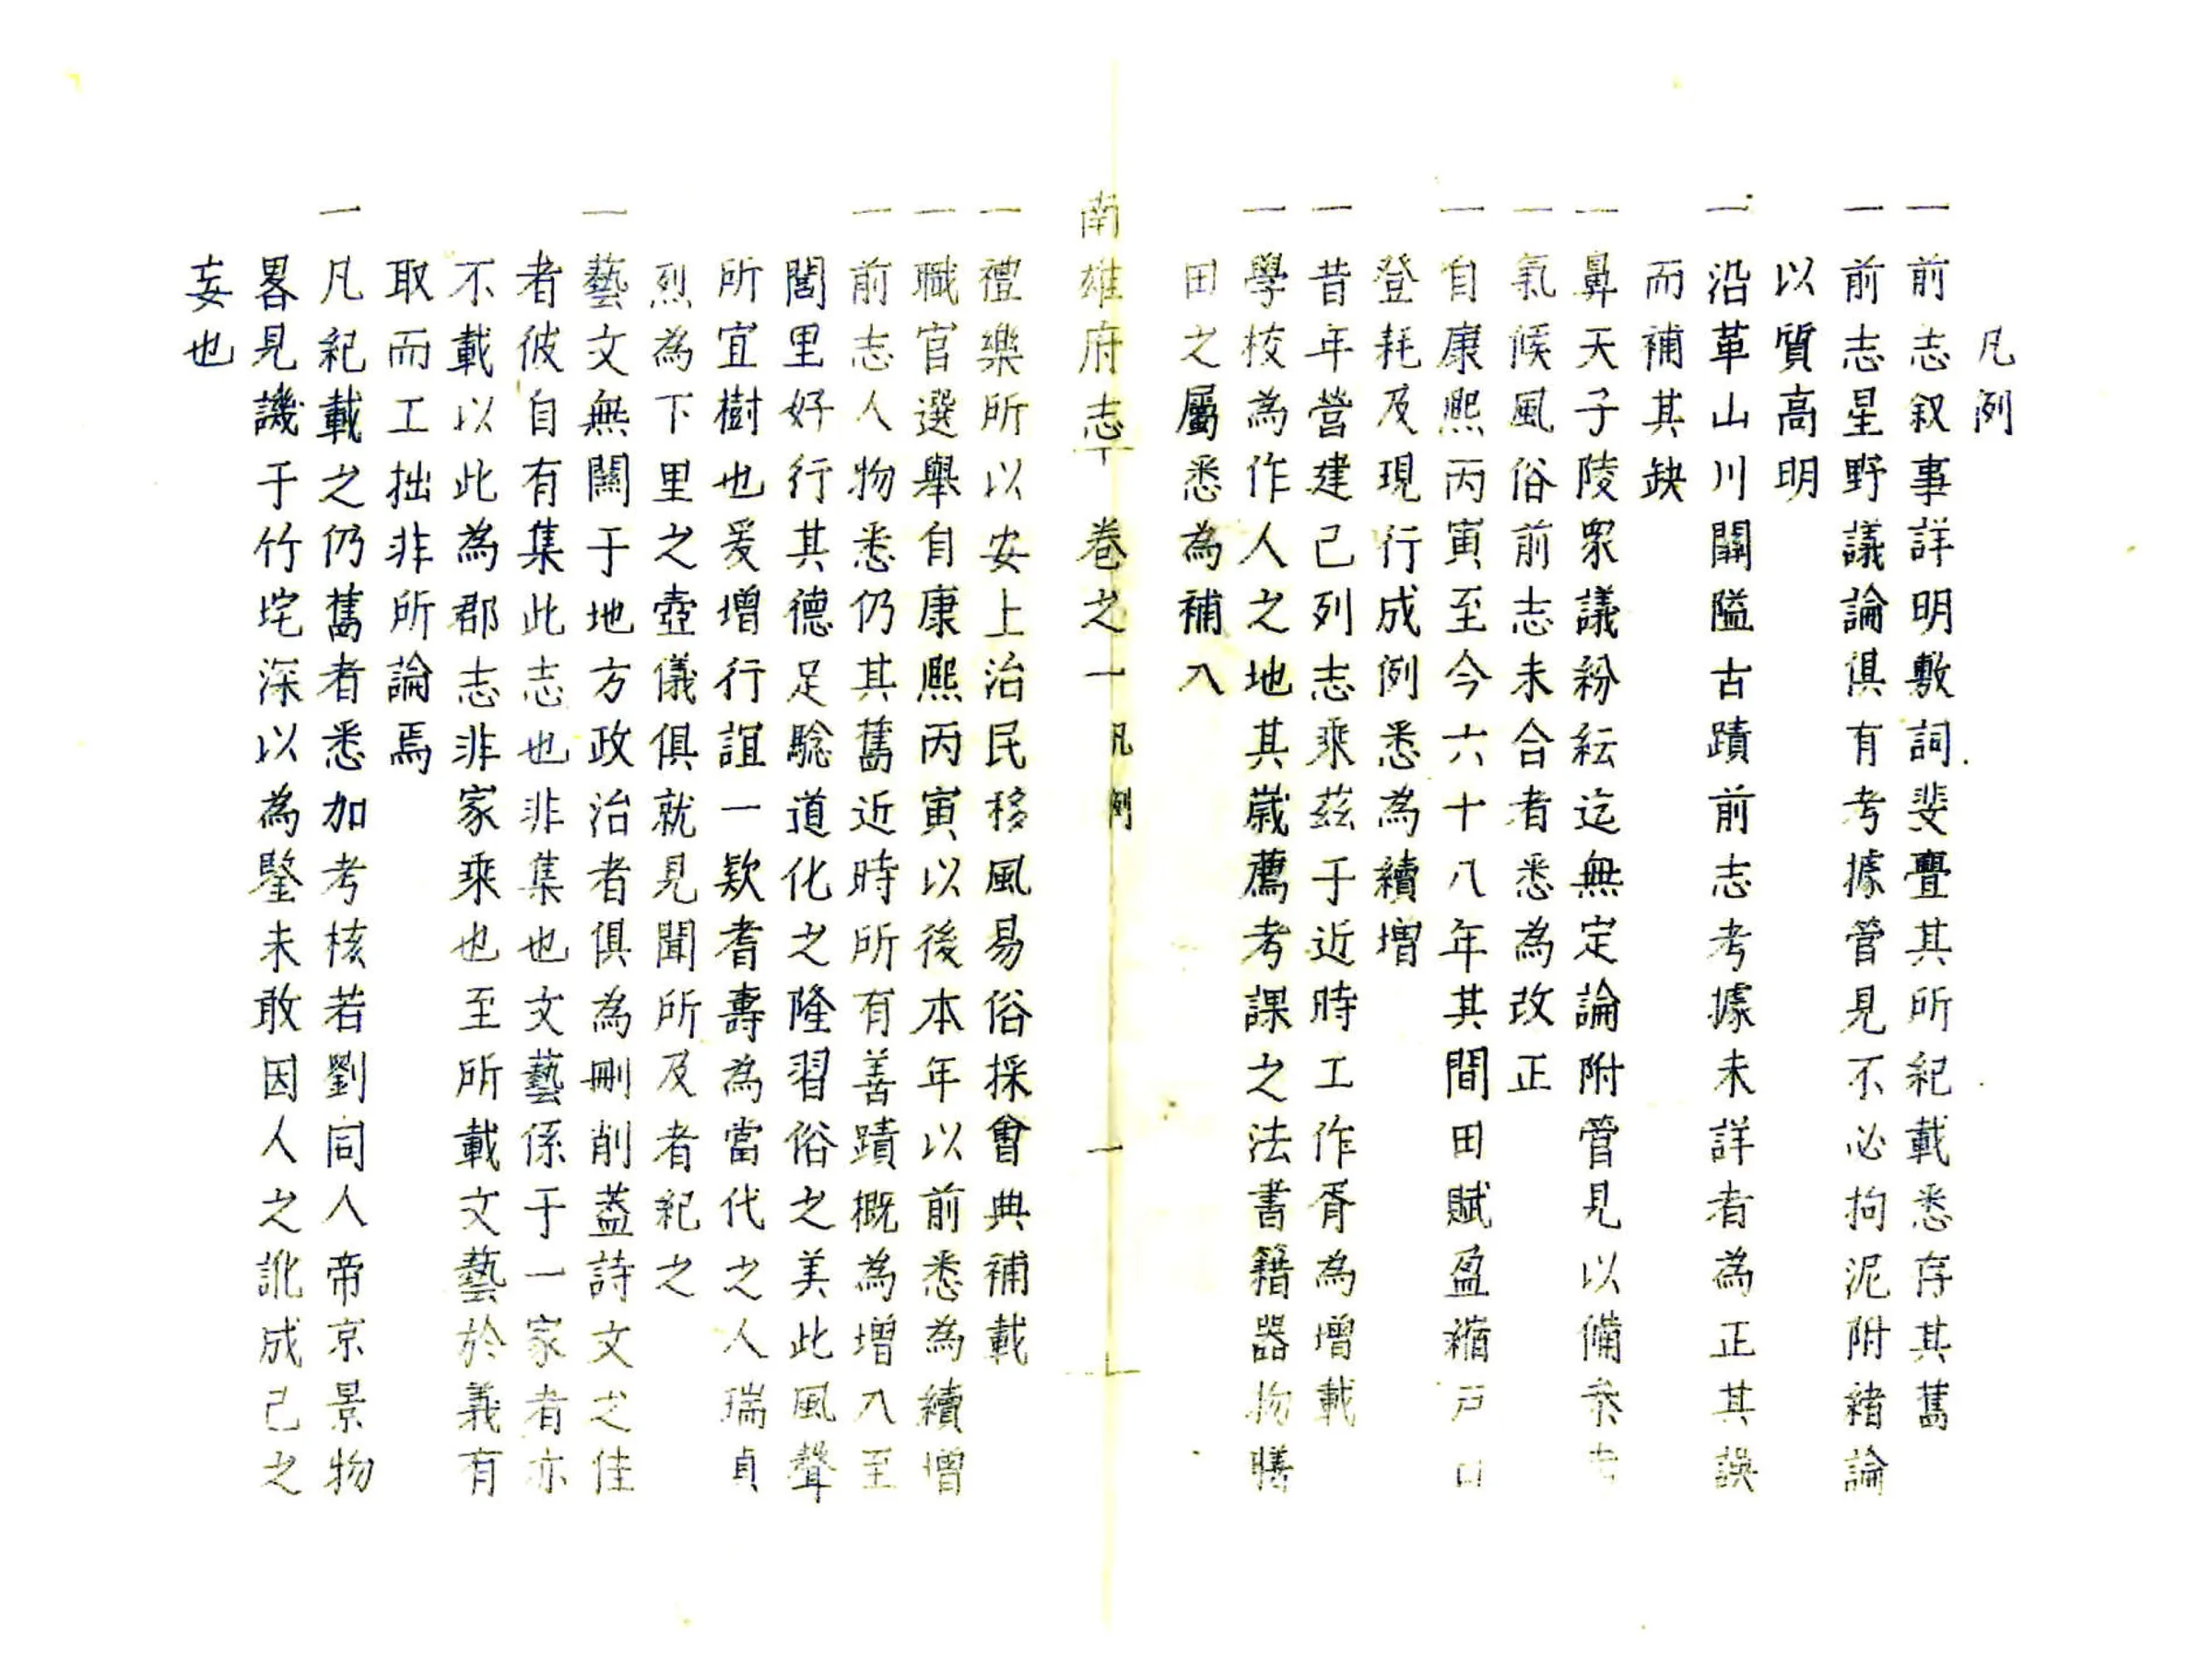 凡例
一前志叙事詳明敷詞斐亹其所紀載悉存其舊
一前志星野議論俱有考據管見不必拘泥附緒論
以質高明
一沿革山川關隘古蹟前志考據未詳者為正其誤
而補其缺
一鼻天子陵眾議紛紜迄無定論附管見以備叅考
一氣候風俗前志未合者悉為改正
一自康熙丙寅至今六十八年其間田賦盈縮戶口
登耗及現行成例悉為續增
一昔年營建已列志乘茲于近時工作胥為增載
一學校為作人之地其歲薦考課之法書籍器物膳
田之屬悉為補入
南雄府志 卷之一 凡例 一
一禮樂所以安上治民移風易俗採會典補載
一職官選舉自康熙丙寅以後本年以前悉為續增
一前志人物悉仍其舊近時所有善蹟概為增入至
閭里好行其德足騐道化之隆習俗之美此風聲
所宜樹也爰增行誼一欵耆壽為當代之人瑞貞
烈為下里之壺儀俱就見聞所及者紀之
一藝文無關于地方政治者俱為刪削葢詩文之佳
者彼自有集此志也非集也文藝係于一家者亦
不載以此為郡志非家乘也至所載文藝於義有
取而工拙非所論焉
一凡紀載之仍舊者悉加考核若劉同人帝京景物
畧見譏于竹垞深以為鑒未敢因人之訛成己之
妄也